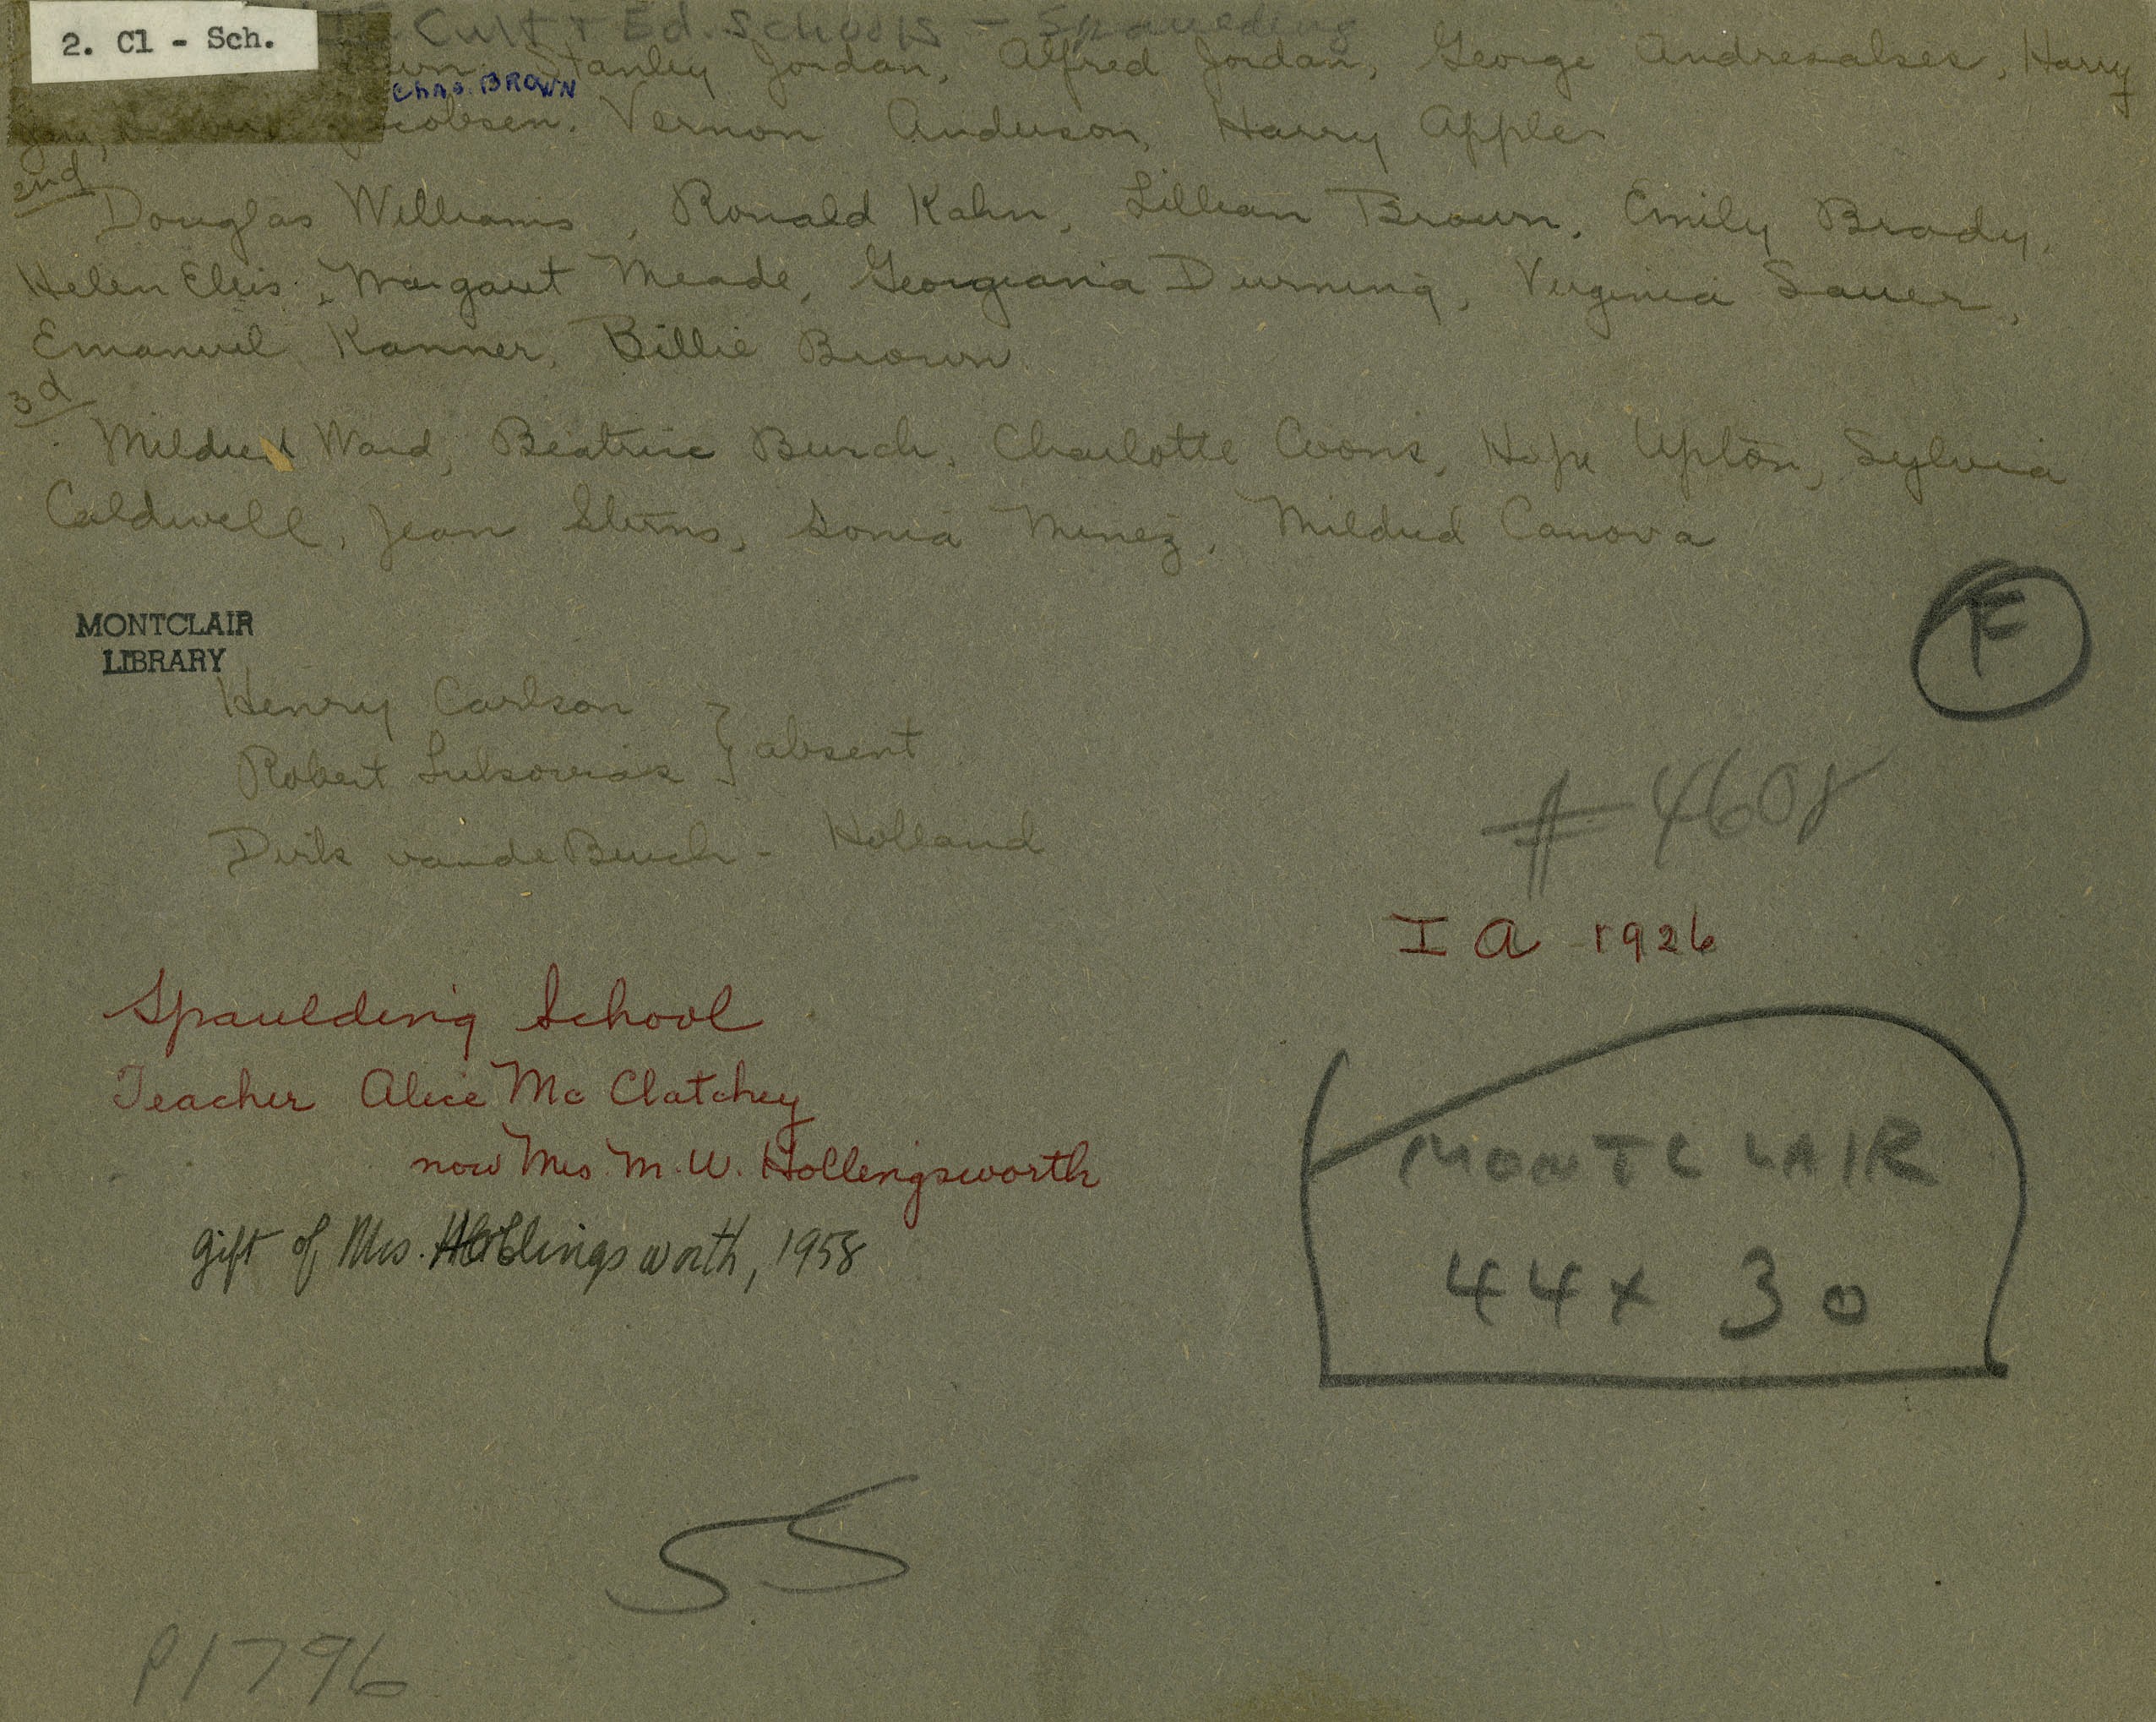 2. Cl - Sch.
Cult + Ed. Schools - Spaulding
Stanley Jordan, Alfred Jordan, George Harry
Chas. BROWN
Vernon Anderson, Harry Apple
2nd
Douglas Williams, Ronald Kahn, Lillian Brown, Emily Brady,
Helen Elis, Margaret Meade, Georgiana Durning, Virginia Sauer,
Emanuel Kanner, Billie Brown
3d
Mildred Ward, Beatrice Burch, Charlotte Coons, Hope Upton, Sylvia
Caldwell, Jean Sterns, Sonia Minez, Mildred Canova
MONTCLAIR
LIBRARY
Henry Carlson
Robert } absent
Dirk Holland
F
# 4608
I a 1926
Spaulding School
Teacher Alice Mc Clatchey
now Mrs. M. W. Hollingsworth
gift of Mrs. Hollingsworth, 1958
MONTCLAIR
44 x 30
SS
P1796